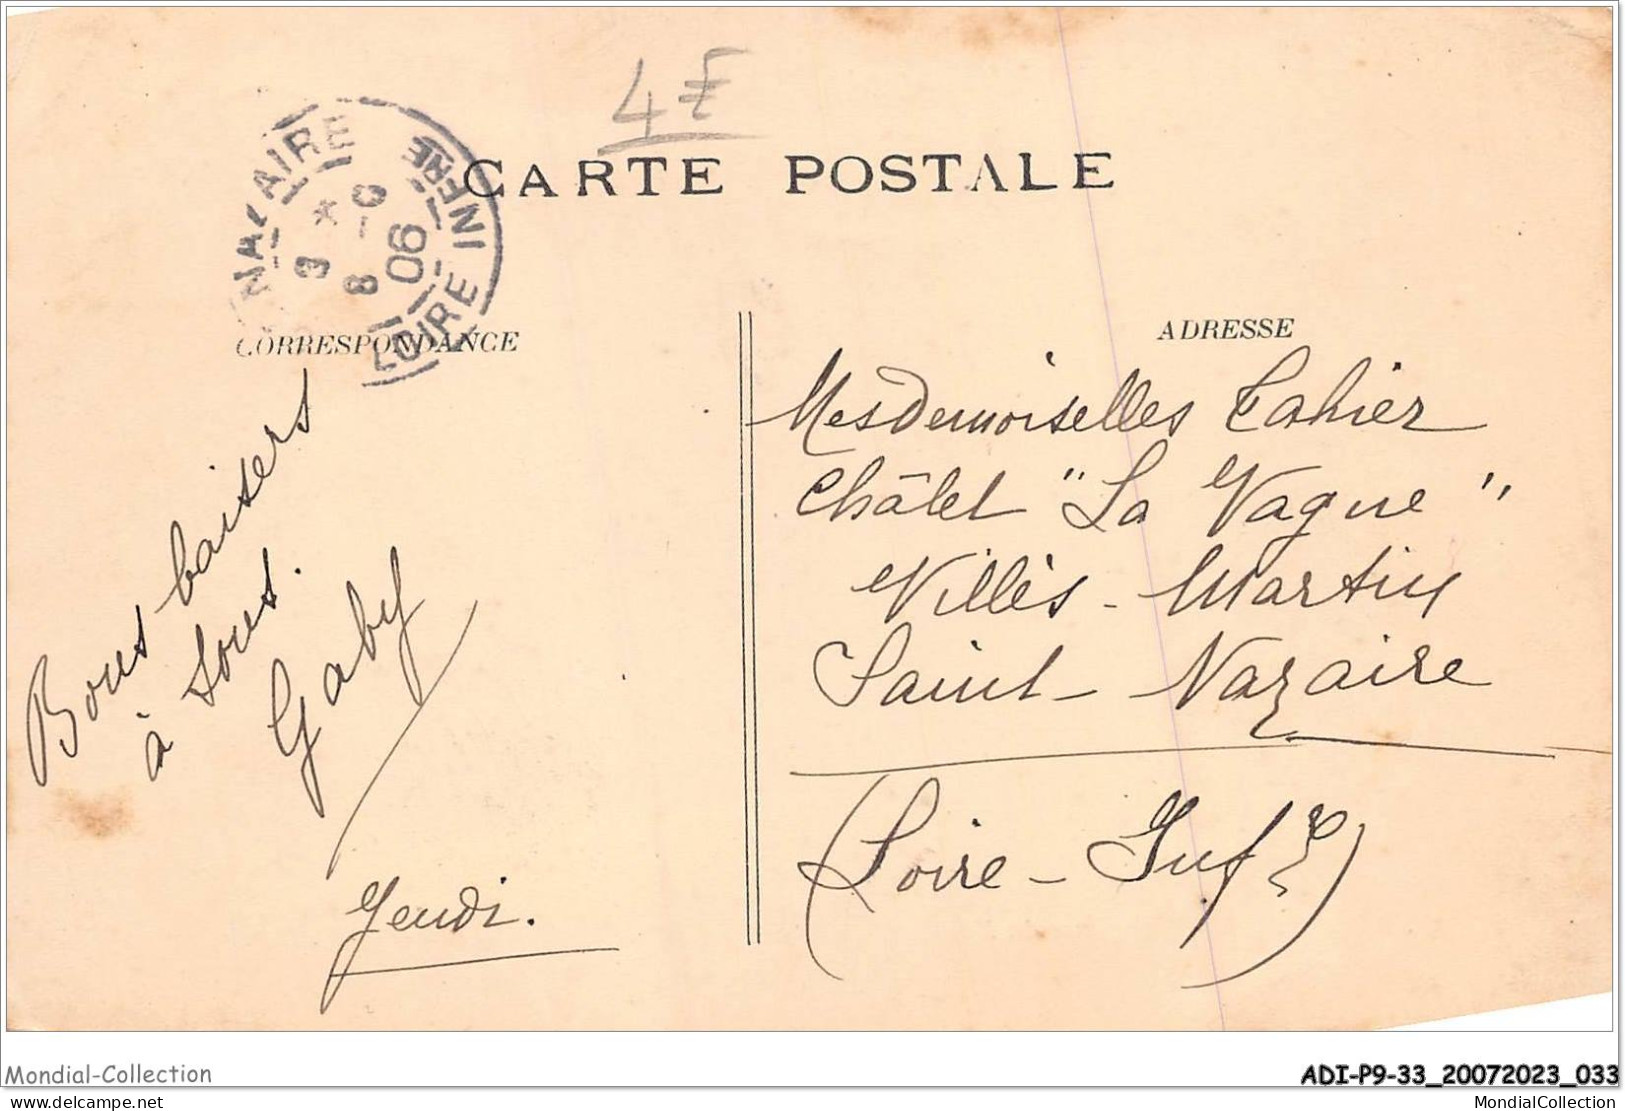 4F
CARTE POSTALE
NAZAIRE
LOIRE INFRE
3 *
8 - 9
06
CORRESPONDANCE
ADRESSE
Bons baisers
à tous.
Gaby
Jeudi.
Mesdemoiselles Cahier
Châlet "La Vague"
Villès-Martin
Saint-Nazaire
(Loire-Infre)
Mondial-Collection
ADI-P9-33_20072023_033
www.delcampe.net
MondialCollection